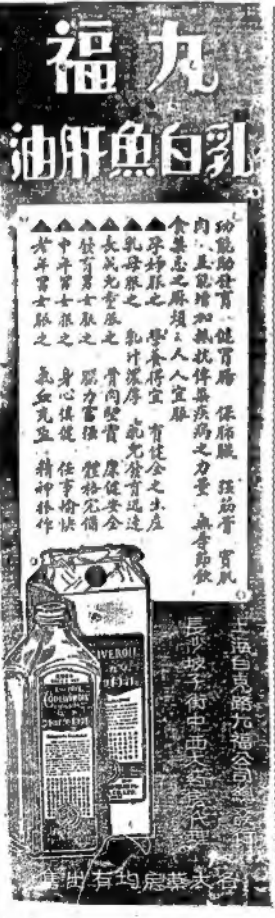 九福
乳白魚肝油
功能助發育 健胃腸 保肺臟 强筋骨 實肌
肉 並能增加抵抗傳染疾病之力量 無季節飲
食禁忌之麻煩 人人宜服
▲孕婦服之 營養得宜 有健全之生產
▲乳母服之 乳汁濃厚 乳兒發育迅速
▲長成兒童服之 骨肉堅實 康健安全
▲發育男女服之 腦力富强 體格完備
▲中年男女服之 身心健康 任事愉快
▲老年男女服之 氣血充盈 精神振作
上海白克路九福公司
長沙坡子街中西大藥房
各大藥房均有出售